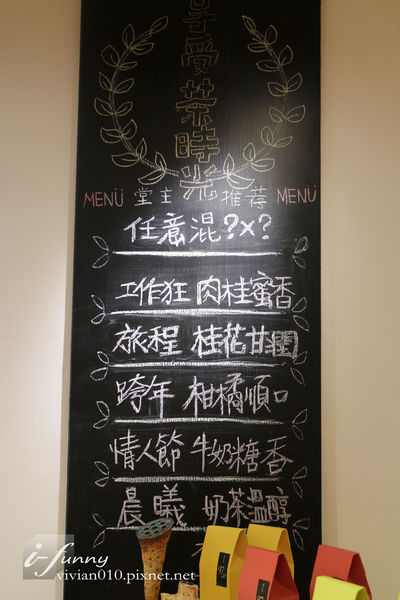 享受茶時光
MENÜ 堂主 推荐 MENÜ
任意混?x?
工作狂 肉桂蜜香
旅程 桂花甘韻
跨年 柑橘順口
情人節 牛奶糖香
晨曦 奶茶溫醇
i-funny
vivian010.pixnet.net